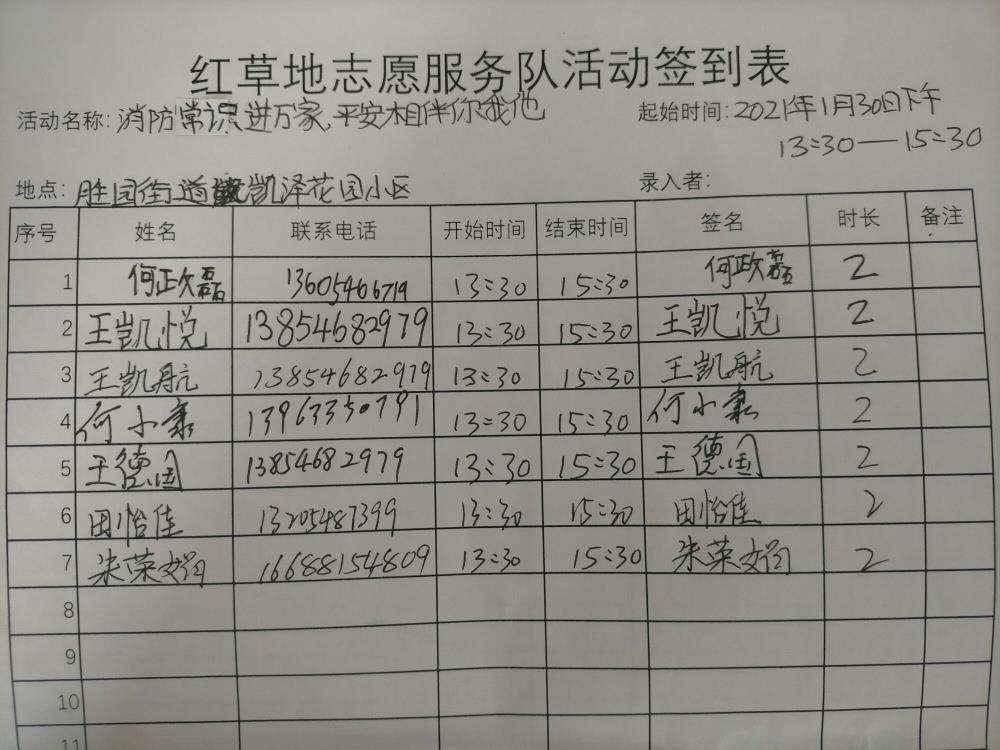 红草地志愿服务队活动签到表
活动名称: 消防常识进万家,平安相伴你我他 起始时间: 2021年1月30日下午
13:30—15:30
地点: 胜园街道凯泽花园小区 录入者:
序号 姓名 联系电话 开始时间 结束时间 签名 时长 备注
1 何政磊 13605466719 13:30 15:30 何政磊 2
2 王凯悦 13854682979 13:30 15:30 王凯悦 2
3 王凯航 13854682979 13:30 15:30 王凯航 2
4 何小素 13963350791 13:30 15:30 何小素 2
5 王德国 13854682979 13:30 15:30 王德国 2
6 田怡佳 13205487399 13:30 15:30 田怡佳 2
7 朱荣 16688154809 13:30 15:30 朱荣 2
8
9
10
11